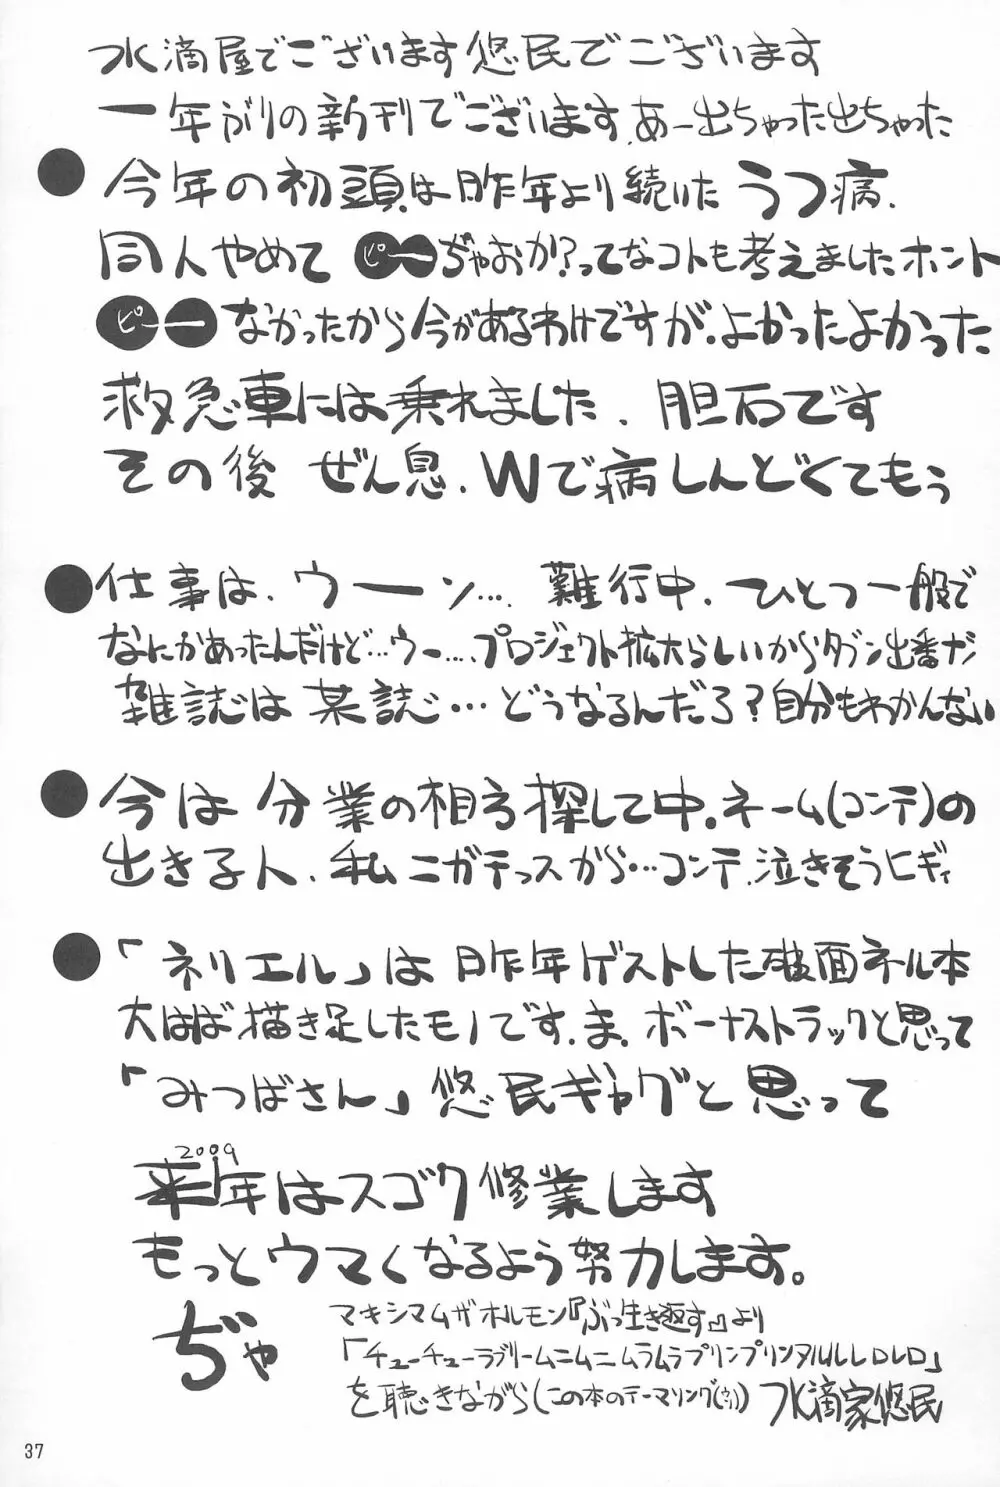 水滴屋でございます悠民でございます
一年ぶりの新刊でございます。あー出ちゃった出ちゃった
●今年の初頭は昨年より続いたうつ病、
同人やめてピーぢゃおか?ってなコトも考えましたホント
ピーなかったから今があるわけですが、よかったよかった
救急車には乗れました、胆石です
その後 ぜん息、Wで病しんどくてもう
●仕事は、ウーン…、難行中、ひとつ一般で
なにかあったんだけど…ウー…、プロジェクト拡大らしいからタブン出番ナシ
雑誌は某誌…どうなるんだろ?自分もわかんない
●今は分業の相方探して中。ネーム(コンテ)の
出きる人、私ニガテっスから…コンテ、泣きそうヒギィ
●「ネリエル」は昨年ゲストした破面ネル本
大はば描き足したモノです、ま、ボーナストラックと思って
「みつばさん」悠民ギャグと思って
2009
来年はスゴク修業します
もっとウマくなるよう努力します。
ぢゃ
マキシマムザホルモン『ぶっ生き返す』より
「チューチューラブリームニムニムラムラプリンプリンヌルルレロレロ」
を聴きながら(この本のテーマソング(ウソ)) 水滴家悠民
37